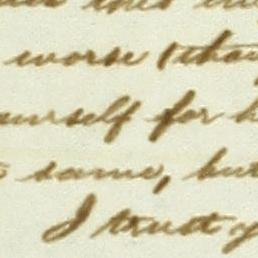 worse (than
urself for h
same, but
I trust y